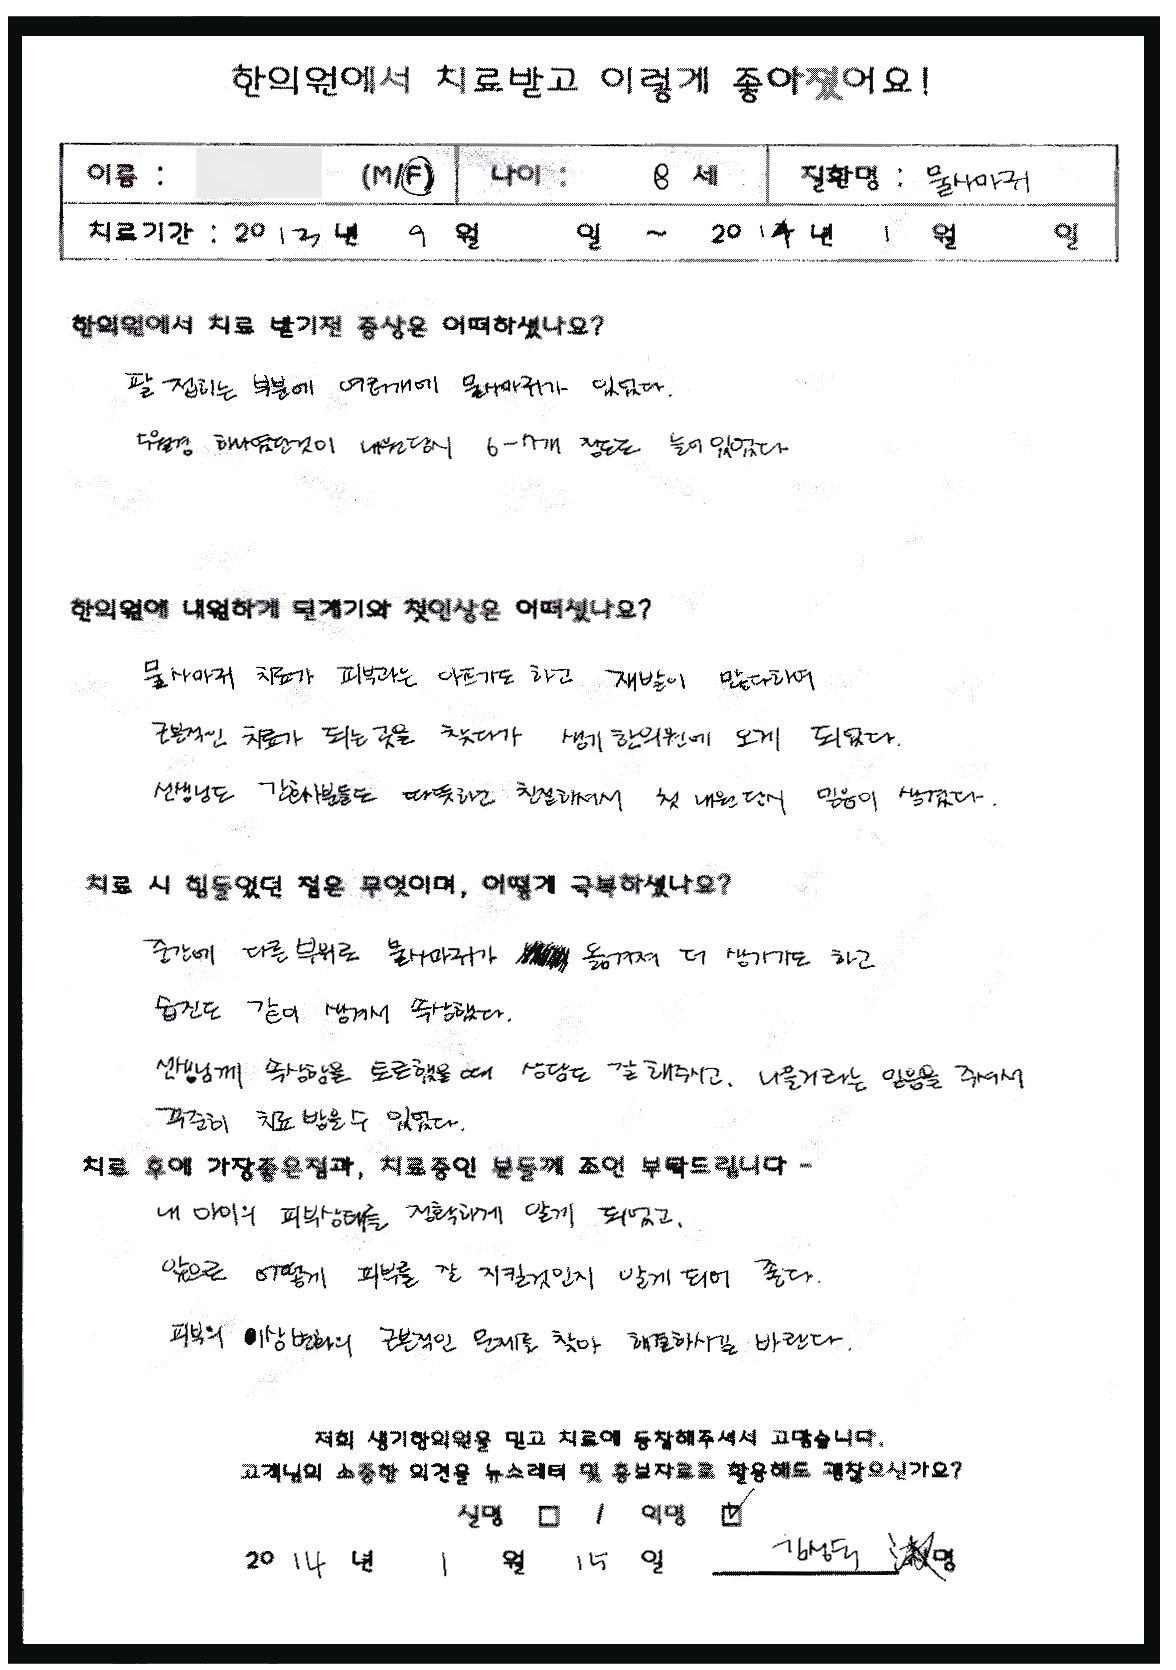 한의원에서 치료받고 이렇게 좋아졌어요!
이름 : (M/F) 나이 : 8 세 질환명 : 물사마귀
치료기간 : 2013년 9 월 일 ~ 2014년 1 월 일
한의원에서 치료 받기전 증상은 어떠하셨나요?
팔 접히는 부분에 여러개에 물사마귀가 있었다.
하나였던것이 내원당시 6-7개 정도로 늘어 있었다
한의원에 내원하게 된계기와 첫인상은 어떠셨나요?
물사마귀 치료가 피부과는 아프기도 하고 재발이 많다하여
근본적인 치료가 되는곳을 찾다가 생기한의원에 오게 되었다.
선생님도 간호사분들도 따뜻하고 친절하셔서 첫 내원당시 믿음이 생겼다.
치료 시 힘들었던 점은 무엇이며, 어떻게 극복하셨나요?
중간에 다른부위로 물사마귀가 옮겨져 더 생기기도 하고
습진도 같이 생겨서 속상했다.
선생님께 속상함을 토로했을때 상담도 잘해주시고, 나을거라는 믿음을 주셔서
꾸준히 치료받을수 있었다.
치료 후에 가장좋은점과, 치료중인 분들께 조언 부탁드립니다 -
내 아이의 피부상태를 정확하게 알게 되었고,
앞으로 어떻게 피부를 잘 지킬것인지 알게되어 좋다.
피부의 이상변화의 근본적인 문제를 찾아 해결하시길 바란다.
저희 생기한의원을 믿고 치료에 동참해주셔서 고맙습니다.
고객님의 소중한 의견을 뉴스레터 및 홍보자료로 활용해도 괜찮으신가요?
실명 □ / 익명 ☑
2014년 1 월 15 일 명